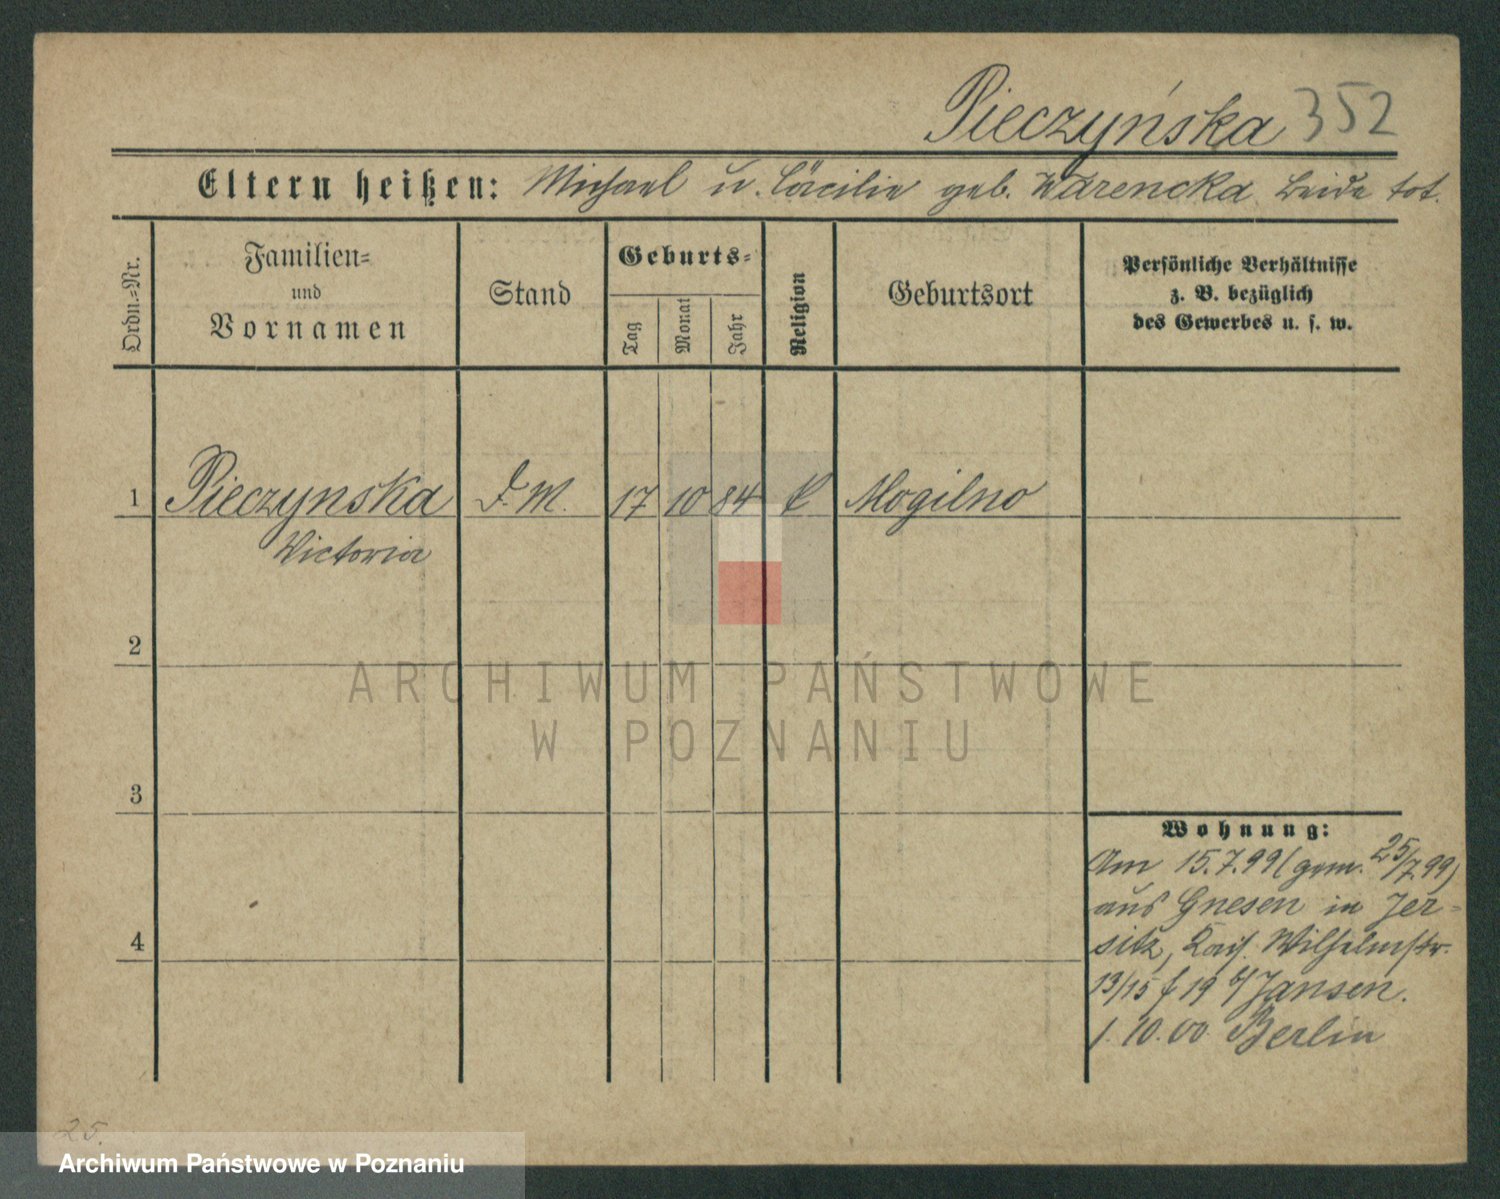 Pieczyńska 352
Eltern heißen: Michael u. Cäcilie geb. Warencka beide tot.
Ordn.=Nr.
Familien=
und
Vornamen
Stand
Geburts=
Tag
Monat
Jahr
Religion
Geburtsort
Persönliche Verhältnisse
z. B. bezüglich
des Gewerbes u. s. w.
1 Pieczynska D. M. 17 10 84 k Mogilno
Victoria
2
ARCHIWUM PAŃSTWOWE
W POZNANIU
3
Wohnung:
Am 15.7.99 (gem. 25/7.99)
aus Gnesen in Jer=
sitz, Kais. Wilhelmstr.
13/15 f 19 b/Jansen.
1. 10. 00 Berlin
4
25.
Archiwum Państwowe w Poznaniu